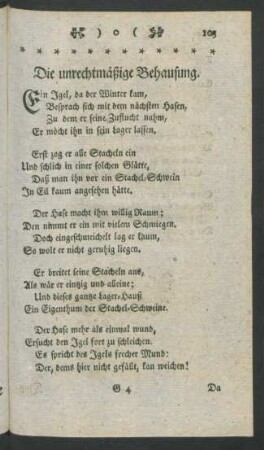 ) o (
103
Die unrechtmäßige Behausung.
Ein Igel, da der Winter kam,
Besprach sich mit dem nächsten Hasen,
Zu dem er seine Zuflucht nahm,
Er möcht ihn in sein Lager lassen.
Erst zog er alle Stacheln ein
Und schlich in einer solchen Glätte,
Daß man ihn vor ein Stachel-Schwein
In Eil kaum angesehen hätte.
Der Hase macht ihm willig Raum;
Den nimmt er ein mit vielem Schmiegen.
Doch eingeschmeichelt lag er kaum,
So wolt er nicht geruhig liegen.
Er breitet seine Stacheln aus,
Als wär er eintzig und alleine;
Und dieses gantze Lager-Hauß
Ein Eigenthum der Stachel-Schweine.
Der Hase mehr als einmal wund,
Ersucht den Igel fort zu schleichen.
Es spricht des Igels frecher Mund:
Der, dems hier nicht gefällt, kan weichen!
G 4
Da